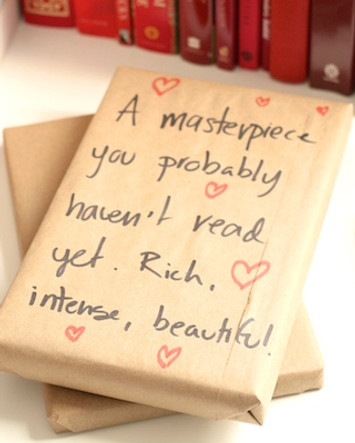 A masterpiece
you probably
haven't read
yet. Rich,
intense, beautiful!